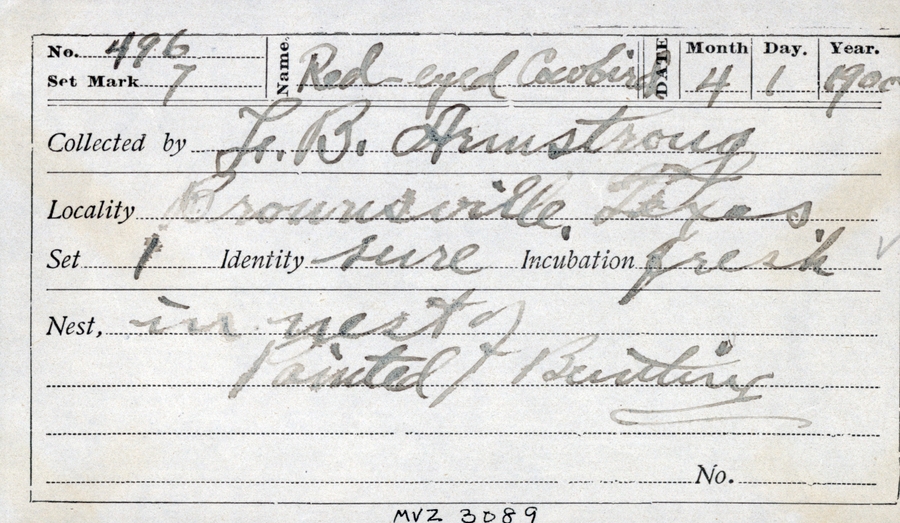 No. 496 Name. Red-eyed Cowbird DATE Month Day. Year.
Set Mark 7 4 1 1900
Collected by F. B. Armstrong
Locality Brownsville, Texas
Set 1 Identity sure Incubation fresh
Nest, in nest of
Painted Bunting
No.
MVZ 3089